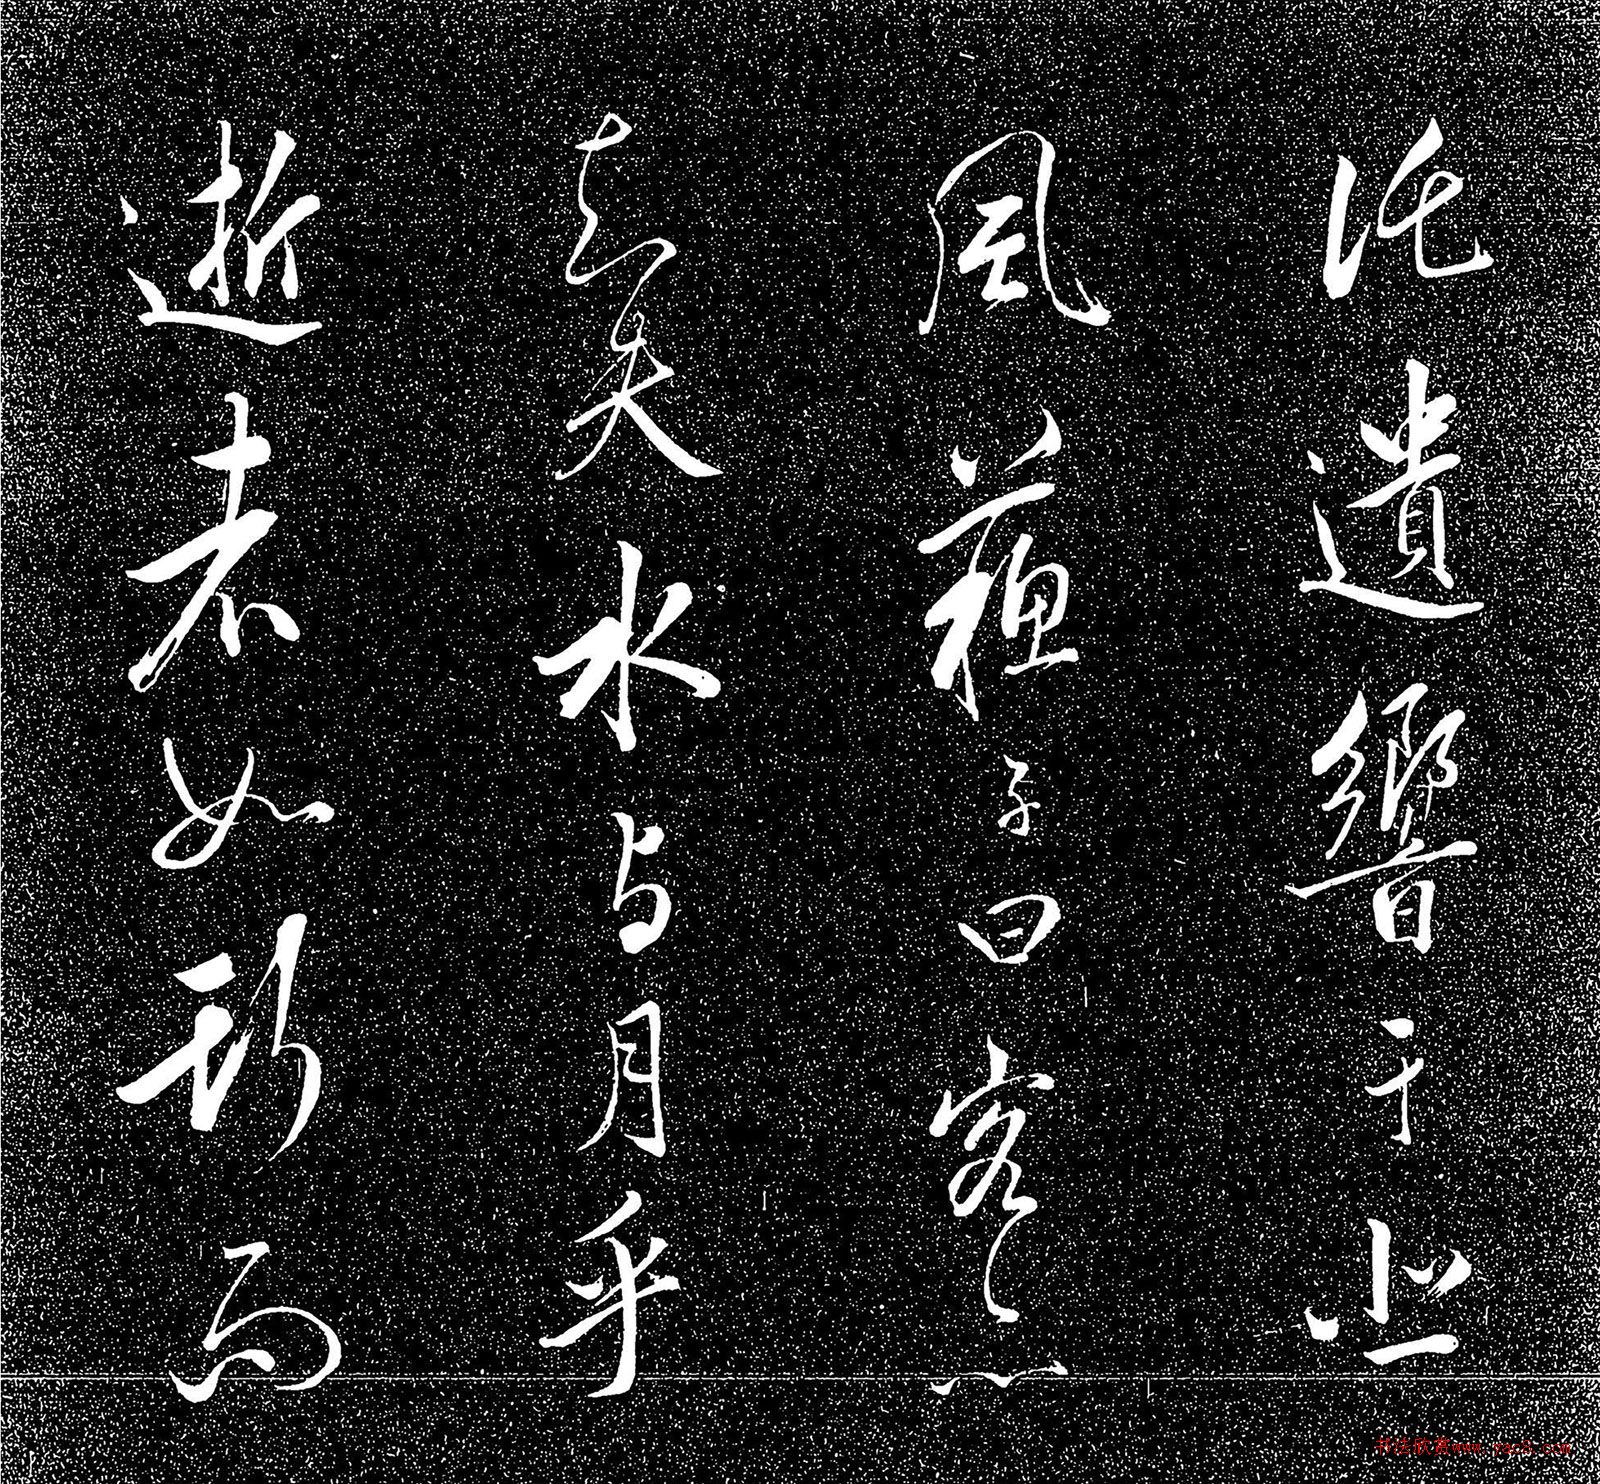 託遺響于悲
風蘇子曰客亦
知夫水与月乎
逝者如斯而
书法欣赏www.yac8.com